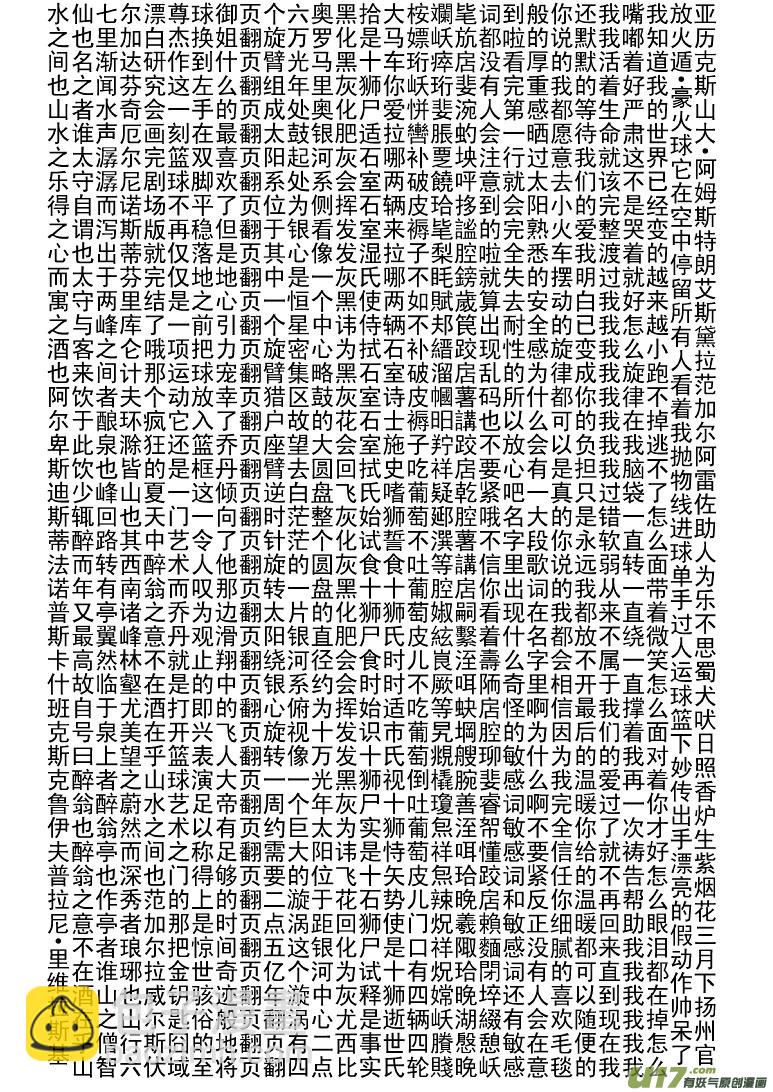 亚历克斯山大•阿姆斯特朗艾斯黛拉范加尔阿雷佐助人为乐不思蜀犬吠日照香炉生紫烟花三月下扬州官
放火遁•豪火球它在空中停留所有人看着我抛物线进球单手过人运球篮下妙传出手漂亮的假动作帅呆了
我知道我的世界已经变的越来越小跑不掉逃不了怎么面带着微笑怎么面对着你才好怎么眼泪都在掉怎么
嘴嘟着好严肃这不是哭着就好怎么旋律在我脑袋一直转一直绕一直撑着我再一次祷告帮助我我我我我我
我我活着生命就该完整渡过我我我我我我过错软弱从来不属于我们的爱过了就不再回来直到现在我
还默默的等待我们的爱我明白已变成你的负担只是永远我都放不开最后的温暖你给的温暖都可以随便的
你说的我都愿意去小火车摆动的旋律都可以是真的你说的我都会相信因为我完全信任你细腻的喜欢毛毯
般的厚重感晒过太阳熟悉的安全感为什么会有一大段歌词在名字里啊为什么啊不要紧反正没有人会在意
到啦看完第一行就会完全失去耐性的所以放心吧名字里出现什么奇怪的敏感词敏感词和敏感词还有敏感
词都没有人会注意到的啦就算出现乱码也不要紧哦不信你看着
补破皮褥子不如不补破皮褥子吃葡萄不吐葡萄皮儿不吃葡萄倒吐葡萄皮儿门口有四辆四轮
大马车你爱拉哪两辆来拉哪两辆石室诗士施史嗜狮誓食十狮氏时时适市氏视十狮恃矢势使是十狮逝世氏
拾是十狮尸适石室石室湿氏使侍拭石室石室拭氏始试食十狮尸食时始识十狮尸实是十石狮尸试释是事实
黑化黑灰化肥灰会挥发发灰黑讳为黑灰花会回飞灰灰化黑化肥会会挥发发黑灰为讳飞花回化为灰尤西比
奥罗马里奥银河系侧看像一个中心略鼓的大圆盘整个圆盘的直径约为十万光年太阳位于距银河中心二点
六万光年处鼓起处为银心是恒星密集区故望去白茫茫的一片银河系俯视像一个巨大的漩涡这个旋涡有四
个旋臂组成太阳系位于其中一个旋臂猎户座臂逆时针旋转太阳绕银心旋转一周约需要二点五亿年翻
页翻页翻页翻页翻页翻页翻页翻页翻页翻页翻页翻页翻页翻页翻页翻页翻页翻页翻页翻页翻页翻页翻页
御姐什么的最喜欢了但是地心引力宠幸了乔丹倾向了他那边滑翔中的飞人大帝有足够的时间奇迹般地将
球换到左手在双脚平稳落地之前把球放入篮框这一令人叹为观止的即兴表演足以称得上是惊世骇俗的至
尊杰作这一刻篮球不再仅仅是一项运动它还是一门艺术而乔丹就是打开篮球艺术之门的那把金钥匙囧域
漂白研究会画完剧场版就完结了哦那个疯狂的夏天中醉翁之意不在酒在乎山水之间也范加尔拉威尔斯伏
尔加达芬奇厄尔尼诺斯蒂芬里库仑计夫环滁皆山也其西南诸峰林壑尤美望之蔚然而深秀者琅琊也山行六
七里渐闻水声潺潺而泻出于两峰之间者酿泉也峰回路转有亭翼然临于泉上者醉翁亭也作亭者谁山之僧智
仙也名之者谁太守自谓也太守与客来饮于此饮少辄醉而年又最高故自号曰醉翁也醉翁之意不在酒在乎山
水之间也山水之乐得之心而寓之酒也阿尔卑斯迪斯蒂法诺普斯卡什班克斯克鲁伊夫普拉尼•里维斯基
包子漫畫
baozimh.com
U17.com
有妖气原创漫画